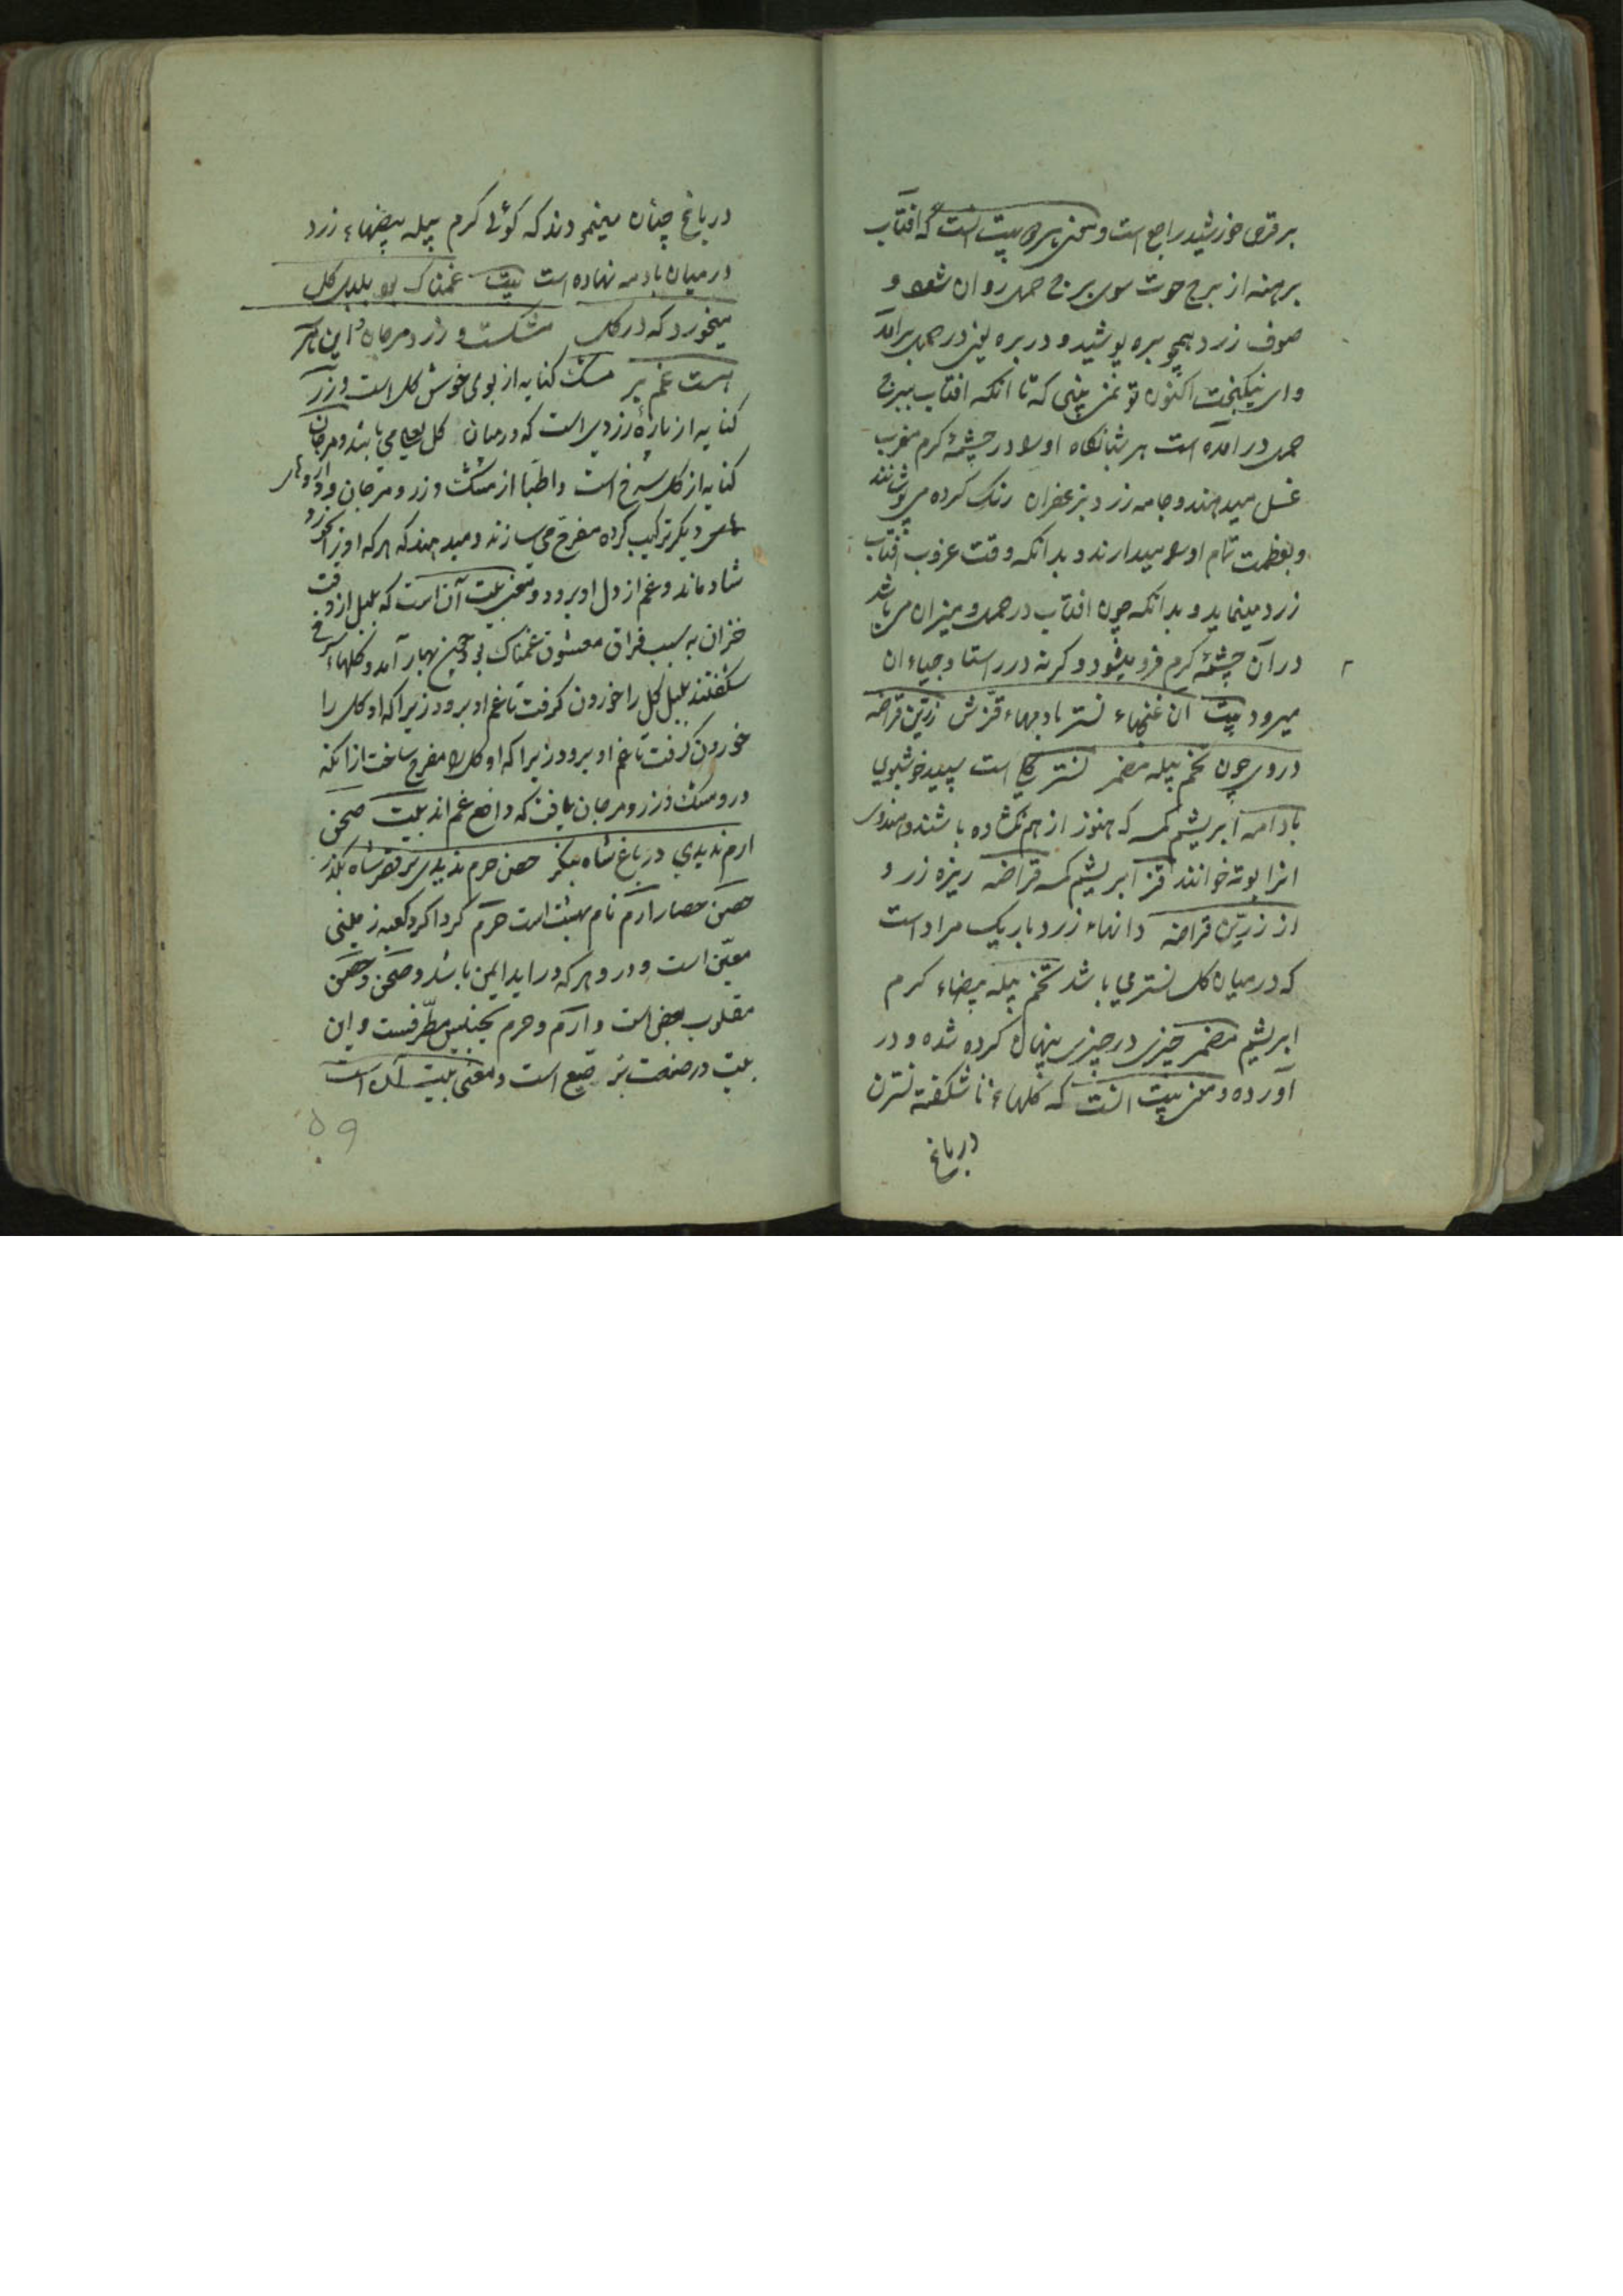 بر قرص خورشید راجع است و معنی هر دو بیت انست که افتاب
برهنه از برج حوت سوی برج حمل روان شود و
صوف زرد همچو بره پوشید و در بره یعنی در حمل برامد
وای نیکبخت اکنون تو نمی بینی که تا انکه افتاب ببرج
حمل در امده است هر شبانگاه او را در چشمهٔ گرم مغرب
غسل میدهند و جامه زرد بزعفران رنگ کرده می پوشانند
و بعظمت تمام او را میدارند و بدانکه وقت غروب افتاب
زرد مینماید و بدانکه چون افتاب در حمل و میزان می باشد
در آن چشمهٔ گرم فرو میشود و گرنه در راستا و چپاء ان
میرود بیت ان غنچهاء نستر بادامهاء قزش زرین قراضه
در وی چون تخم پیله مضمر نستر گلی است سپید خوشبوی
بادامه ابریشم که هنوز از هم نگشاده باشند و هندوی
انرا بوته خوانند قز ابریشم قراضه ریزه زر و
از زرین قراضه دانهاء زرد باریک مراد است
که در میان گل نستر می باشد تخم پیله بیضاء کرم
ابریشم مضمر چیزی در چیزی پنهان کرده شده و در
آورده و معنی بیت انست که گلهاء ناشکفته نسترن
در باغ
در باغ چنان مینمودند که گوئی کرم پیله بیضهاء زرد
در میان بادامه نهاده است بیت غمناک بود بلبل گل
میخورد که در گل مشکست و زر و مرجان و این هر سه
هست غم بر مشک کنایه از بوی خوش گل است و زر
کنایه از پارهٔ زردی است که در میان گل لعل می باشد و مرجان
کنایه از گل سرخ است و اطبا از مشک و زر و مرجان و داروهای
دیگر ترکیب کرده مفرح می سازند و میدهند که هر که او را بخورد
شاد ماند و غم از دل او برود و معنی بیت آن است که بلبل از وقت
خزان به سبب فراق معشوق غمناک بود چون بهار آمد و گلهاء سرخ
شکفتند بلبل گل را خوردن گرفت تا غم او برود زیراکه او گل را
خوردن گرفت تا غم او برود زیراکه او گل را مفرح ساخت از انکه
در و مشک و زر و مرجان یافت که دافع غم اند بیت صحن
ارم ندیدی در باغ شاه بنگر حصن حرم ندیدی بر قصر شاه بگذر
حصن حصار ارم نام بهشت است حرم گرداگرد کعبه زمینی
معین است و در و هر که دراید ایمن باشد و صحن و حصن
مقلوب بعض است و ارم و حرم تجنیس مطرفست و این
بیت در صنعت ترصیع است و معنی بیت آن است
۵۹